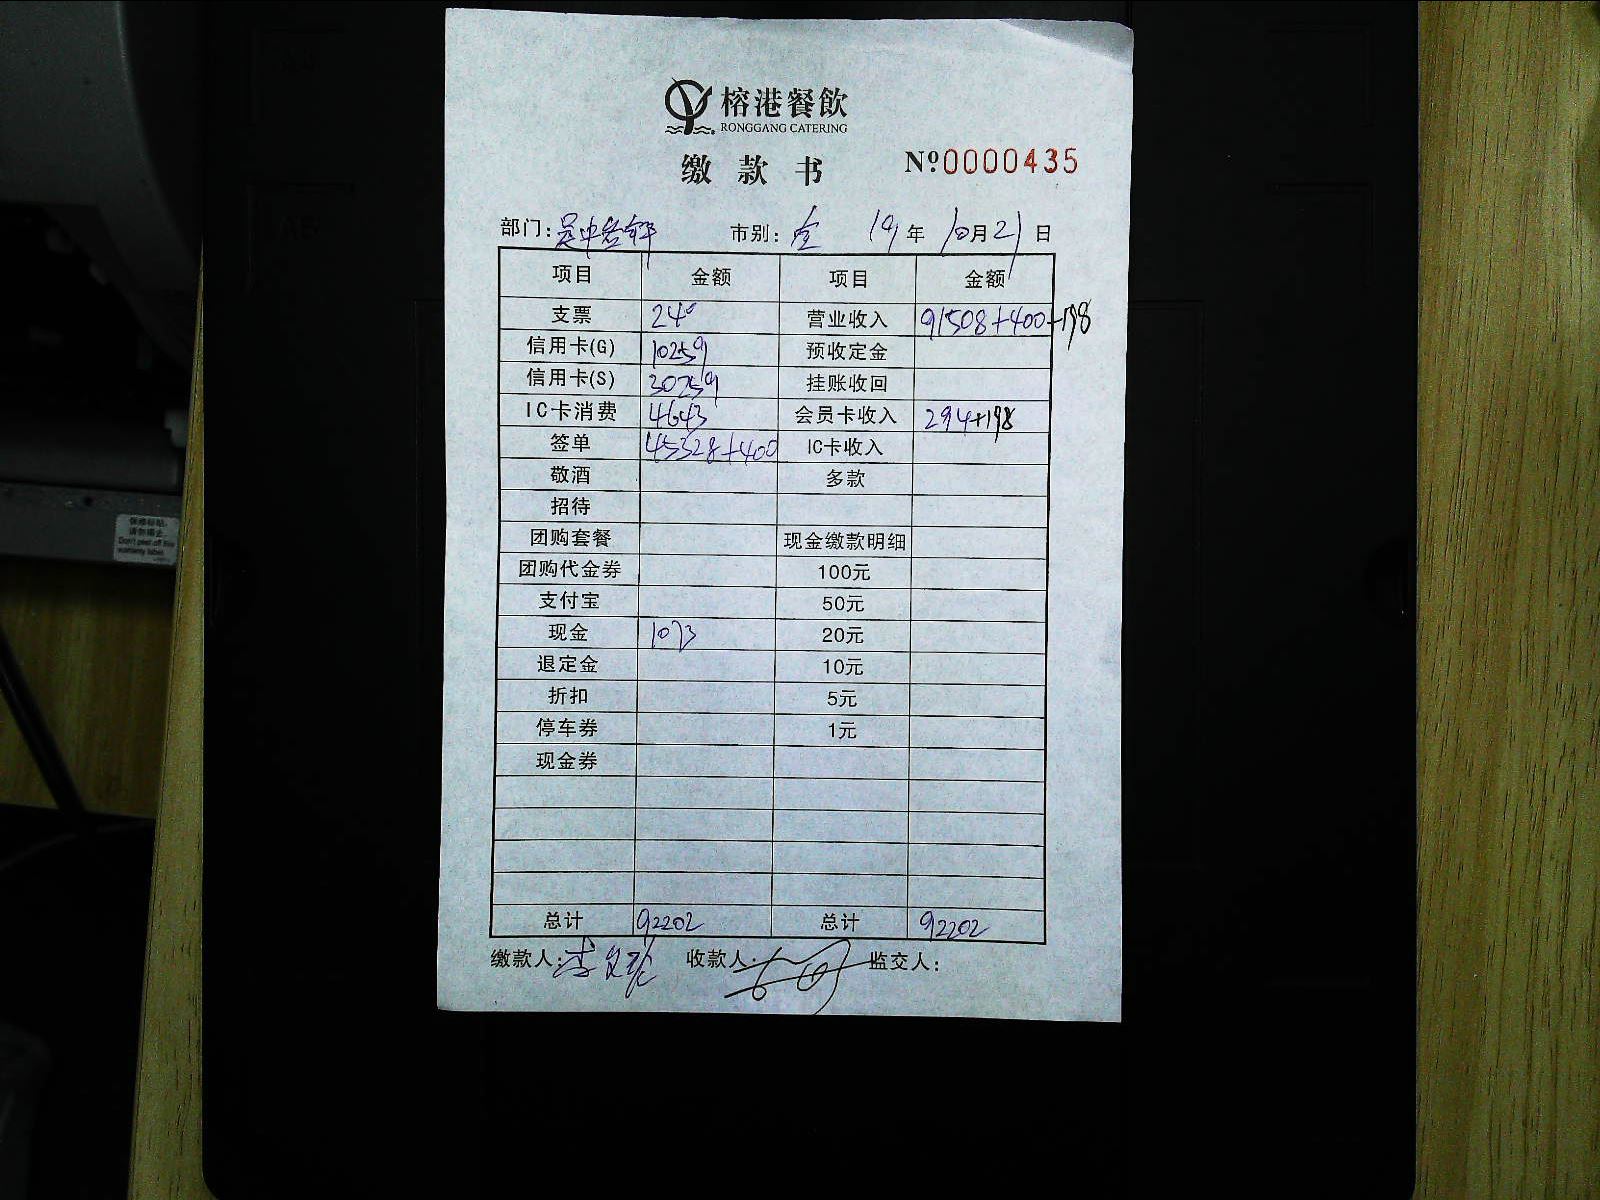 榕港餐飲
RONGGANG CATERING
缴款书 Nº0000435
部门: 市别: 全 19年10月21日
项目 金额 项目 金额
支票 240 营业收入 91508+400-198
信用卡(G) 10259 预收定金
信用卡(S) 30259 挂账收回
IC卡消费 4643 会员卡收入 294+198
签单 45328+400 IC卡收入
敬酒 多款
招待
团购套餐 现金缴款明细
团购代金券 100元
支付宝 50元
现金 1073 20元
退定金 10元
折扣 5元
停车券 1元
现金券
总计 92202 总计 92202
缴款人: 收款人: 监交人: